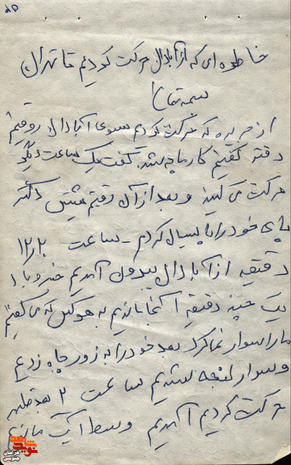 خاطره‌ای که از آبادان حرکت کردیم تا تهران
بسمه تعالی
از جزیره که حرکت کردیم بسوی آبادان رفتیم
دفتر گفتیم کار ما چه شد. گفت یک ساعت دیگر
حرکت می کنید و بعد از آن رفتیم پیش دکتر
پای خود را پانسمال کردم - ساعت ۱۲/۲۰
دقیقه از آبادان بیرون آمدیم خسروآباد
یک چند دقیقه آنجا ماندیم به هر کس که می گفتیم
ما را سوار نمی‌کرد بعد خود را به زور جا زدیم
و سوار لنج شدیم ساعت ۲ بعد ظهر
حرکت کردیم آمدیم وسط آب ماندیم